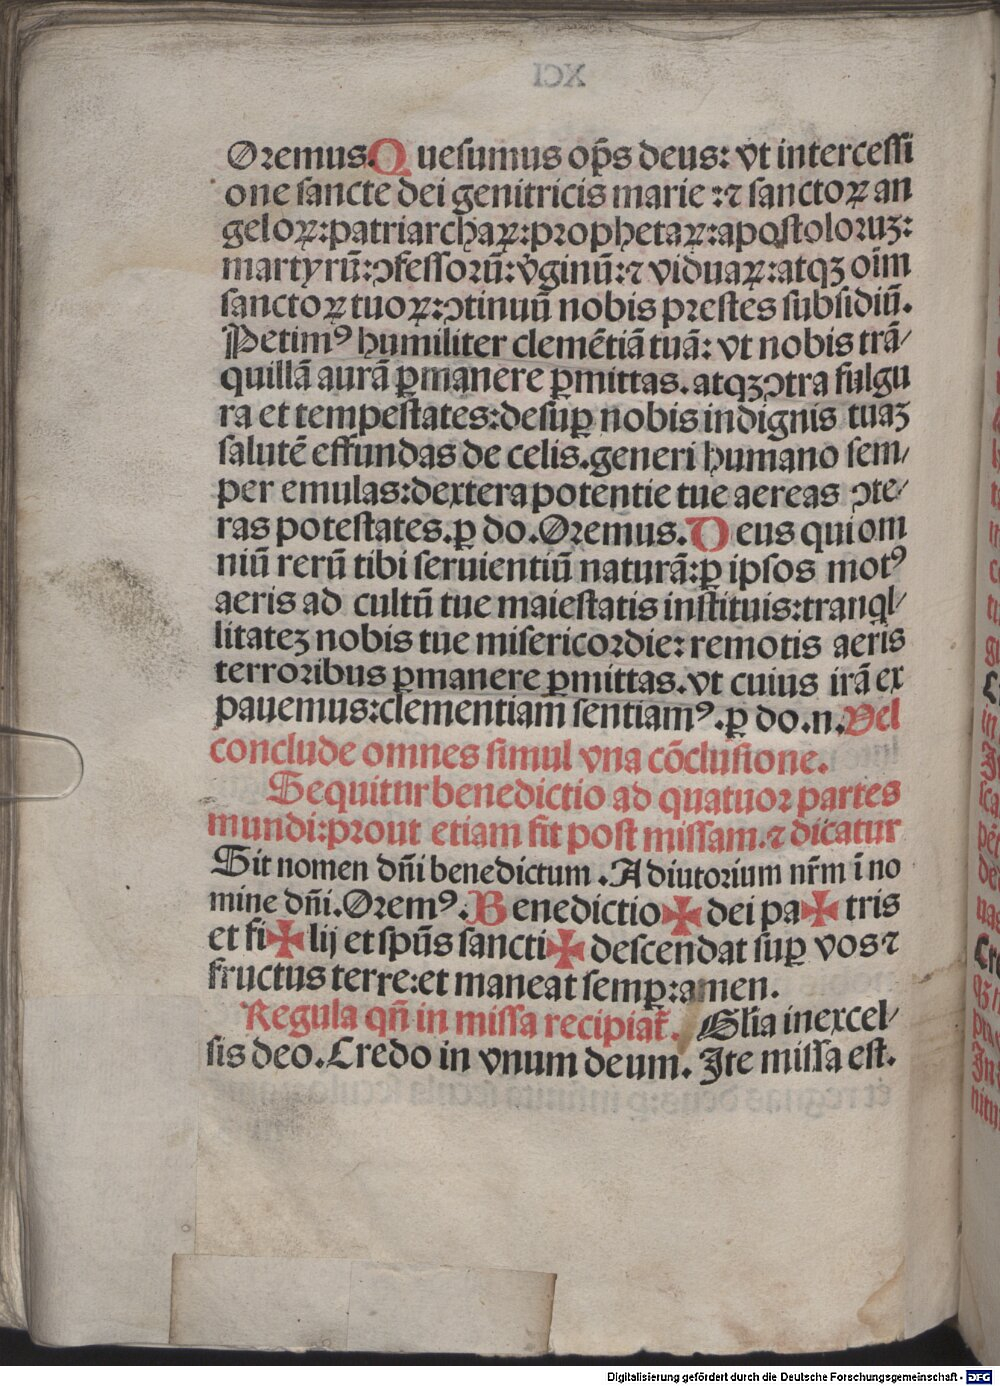 Oremus. Quesumus op̄s deus: vt intercessi
one sancte dei genitricis marie :⁊ sanctoꝝ an
geloꝝ:patriarchaꝝ:prophetaꝝ:apostoloruꝫ:
martyrū:ↄfessorū:v̓ginū:⁊ viduaꝝ:atqꝫ oīm
sanctoꝝ tuoꝝ:ↄtinuū nobis prestes subsidiū.
Petimꝰ humiliter clemētiā tuā: vt nobis trā/
quillā aurā ꝑmanere ꝑmittas. atqꝫ ↄtra fulgu
ra et tempestates:desuꝑ nobis indignis tuaꝫ
salutē effundas de celis.generi humano sem/
per emulas:dextera potentie tue aereas ↄte/
ras potestates.ꝑ do.Oremus. Deus qui om
niū rerū tibi seruientiū naturā:ꝑ ipsos motꝰ
aeris ad cultū tue maiestatis instituis:tranql̓/
litateꝫ nobis tue misericordie: remotis aeris
terroribus ꝑmanere ꝑmittas.vt cuius irā ex
pauemus:clementiam sentiamꝰ.ꝑ do.n.Vel
conclude omnes simul vna cōclusione.
Sequitur benedictio ad quatuor partes
mundi:prout etiam fit post missam.⁊ dicatur
Sit nomen dn̄i benedictum . Adiutorium nr̄m ī no
mine dn̄i.Oremꝰ.Benedictio ✠ dei pa ✠ tris
et fi ✠ lij et spūs sancti ✠ descendat suꝑ vos ⁊
fructus terre:et maneat semꝑ:amen.
Regula qn̄ in missa recipiat̄. Gl̓ia in excel/
sis deo.Credo in vnum deum. Ite missa est.
Digitalisierung gefördert durch die Deutsche Forschungsgemeinschaft - DFG